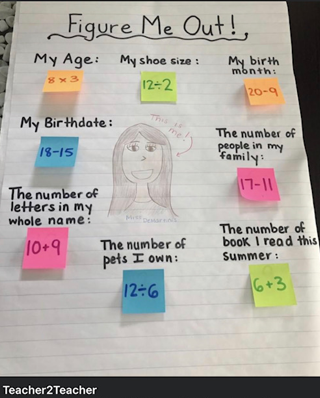 Figure Me Out!
My Age:
8 x 3
My shoe size:
12÷2
My birth
month:
20-9
My Birthdate:
18-15
This is
me!
The number of
people in my
family:
17-11
The number of
letters in my
whole name:
10+9
The number of
pets I own:
12÷6
The number of
book I read this
summer:
6+3
Teacher2Teacher